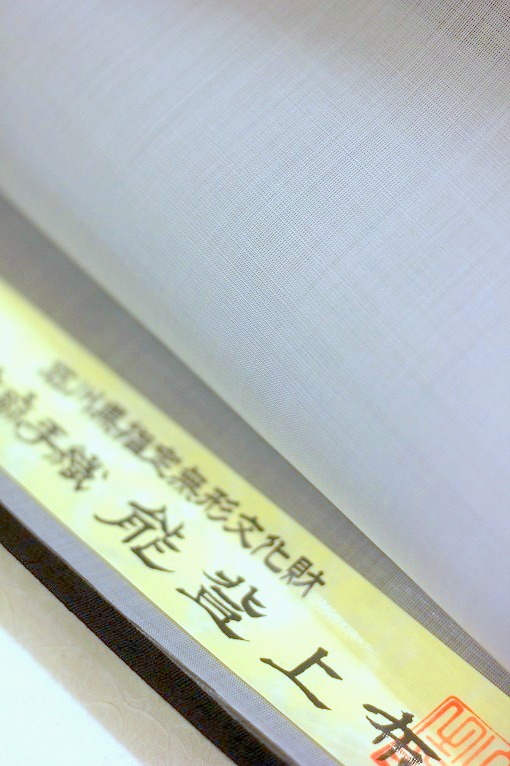 石川県指定無形文化財
手織 能登上布